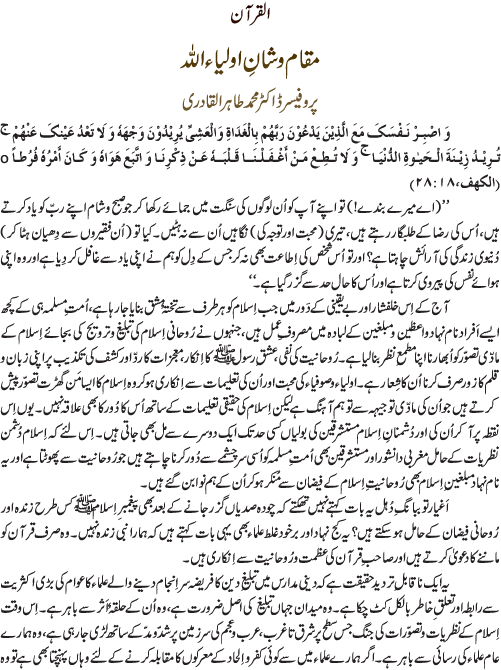 القرآن
مقام و شانِ اولیاء اللہ
پروفیسر ڈاکٹر محمد طاہر القادری
وَ اصْبِرْ نَفْسَکَ مَعَ الَّذِیْنَ یَدْعُوْنَ رَبَّهُمْ بِالْغَدَاةِ وَالْعَشِیِّ یُرِیْدُوْنَ وَجْهَهٗ وَ لَا تَعْدُ عَیْنٰکَ عَنْهُمْ ج
تُرِیْدُ زِیْنَةَ الْحَیٰوةِ الدُّنْیَا ج وَ لَا تُطِعْ مَنْ اَغْفَلْنَا قَلْبَهٗ عَنْ ذِکْرِنَا وَ اتَّبَعَ هَوٰهُ وَ کَانَ اَمْرُهٗ فُرُطًا o
(الکهف، ۱۸: ۲۸)
’’(اے میرے بندے!) تو اپنے آپ کو اُن لوگوں کی سنگت میں جمائے رکھا کر جو صبح و شام اپنے ربّ کو یاد کرتے
ہیں، اُس کی رضا کے طلبگار رہتے ہیں، تیری (محبت اور توجہ کی) نگاہیں اُن سے نہ ہٹیں۔ کیا تو (اُن فقیروں سے دِھیان ہٹا کر)
دُنیوی زندگی کی آرائش چاہتا ہے؟ اور تو اُس شخص کی اِطاعت بھی نہ کر جس کے دِل کو ہم نے اپنی یاد سے غافل کر دیا ہے اور وہ اپنی
ہوائے نفس کی پیروی کرتا ہے اور اُس کا حال حد سے گزر گیا ہے۔‘‘
آج کے اِس خلفشار اور بے یقینی کے دَور میں جب اِسلام کو ہر طرف سے تختۂ مشق بنایا جا رہا ہے، اُمتِ مسلمہ ہی کے کچھ
ایسے اَفراد نام نہاد واعظین و مبلغین کے لبادہ میں مصروفِ عمل ہیں، جنہوں نے رُوحانی اِسلام کی تبلیغ و ترویج کی بجائے اِسلام کے
مادّی تصوّر کو اُبھارنا اپنا مطمعِ نظر بنا لیا ہے۔ رُوحانیت کی نفی، عشقِ رسول ﷺ کا اِنکار، معجزات کا ردّ اور کشف کی تکذیب پر اپنی زبان و
قلم کا زور صرف کرنا اُن کا شِعار ہے۔ اَولیاء و صوفیاء کی محبت اور اُن کی تعلیمات سے اِنکاری ہو کر وہ اِسلام کا ایسا مَن گھڑت تصوّر پیش
کرتے ہیں جو اُن کی مادّی توجیہہ سے تو ہم آہنگ ہے لیکن اِسلام کی حقیقی تعلیمات کے ساتھ اُس کا دُور کا بھی علاقہ نہیں۔ یوں اِس
نقطہ پر آ کر اُن کی اور دُشمنانِ اِسلام مستشرقین کی بولیاں کسی حد تک ایک دوسرے سے مل بھی جاتی ہیں۔ اِس لئے کہ اِسلام دُشمن
نظریات کے حامل مغربی دانشور اور مستشرقین بھی اُمتِ مسلمہ کو اُسی سرچشمے سے دُور کرنا چاہتے ہیں جو رُوحانیت سے پھوٹتا ہے اور یہ
نام نہاد مبلغین اِسلام بھی رُوحانیتِ اِسلام کے فیضان سے منکر ہو کر اُن کے ہم نوا بن گئے ہیں۔
اَغیار تو ببانگِ دُہل یہ بات کہتے نہیں تھکتے کہ چودہ صدیاں گزر جانے کے بعد بھی پیغمبرِ اِسلام ﷺ کس طرح زندہ اور
رُوحانی فیضان کے حامل ہو سکتے ہیں؟ یہ کج نہاد اور برخود غلط علماء بھی یہی بات کہتے ہیں کہ ہمارا نبی زندہ نہیں۔ وہ صرف قرآن کو
ماننے کا دعویٰ کرتے ہیں اور صاحبِ قرآن کی عظمت و رُوحانیت سے اِنکاری ہیں۔
یہ ایک ناقابلِ تردید حقیقت ہے کہ دینی مدارس میں تبلیغِ دین کا فریضہ سراِنجام دینے والے علماء کا عوام کی بڑی اکثریت
سے رابطہ اور تعلقِ خاطر بالکل کٹ چکا ہے۔ وہ میدان جہاں تبلیغ کی اصل ضرورت ہے، وہ اُن کے حلقۂ اَثر سے باہر ہے۔ اِس وقت
اِسلام کے نظریات و تصوّرات کی جنگ، جس سطح پر شرق تا غرب، عرب و عجم کی سرزمین پر شدّ و مدّ کے ساتھ لڑی جا رہی ہے، وہ ہمارے
نام علماء کی رسائی سے باہر ہے۔ اگر ہمارے علماء میں سے کوئی کفر و اِلحاد کے معرکوں کا مقابلہ کرنے کے لئے وہاں پہنچتا بھی ہے تو وہ